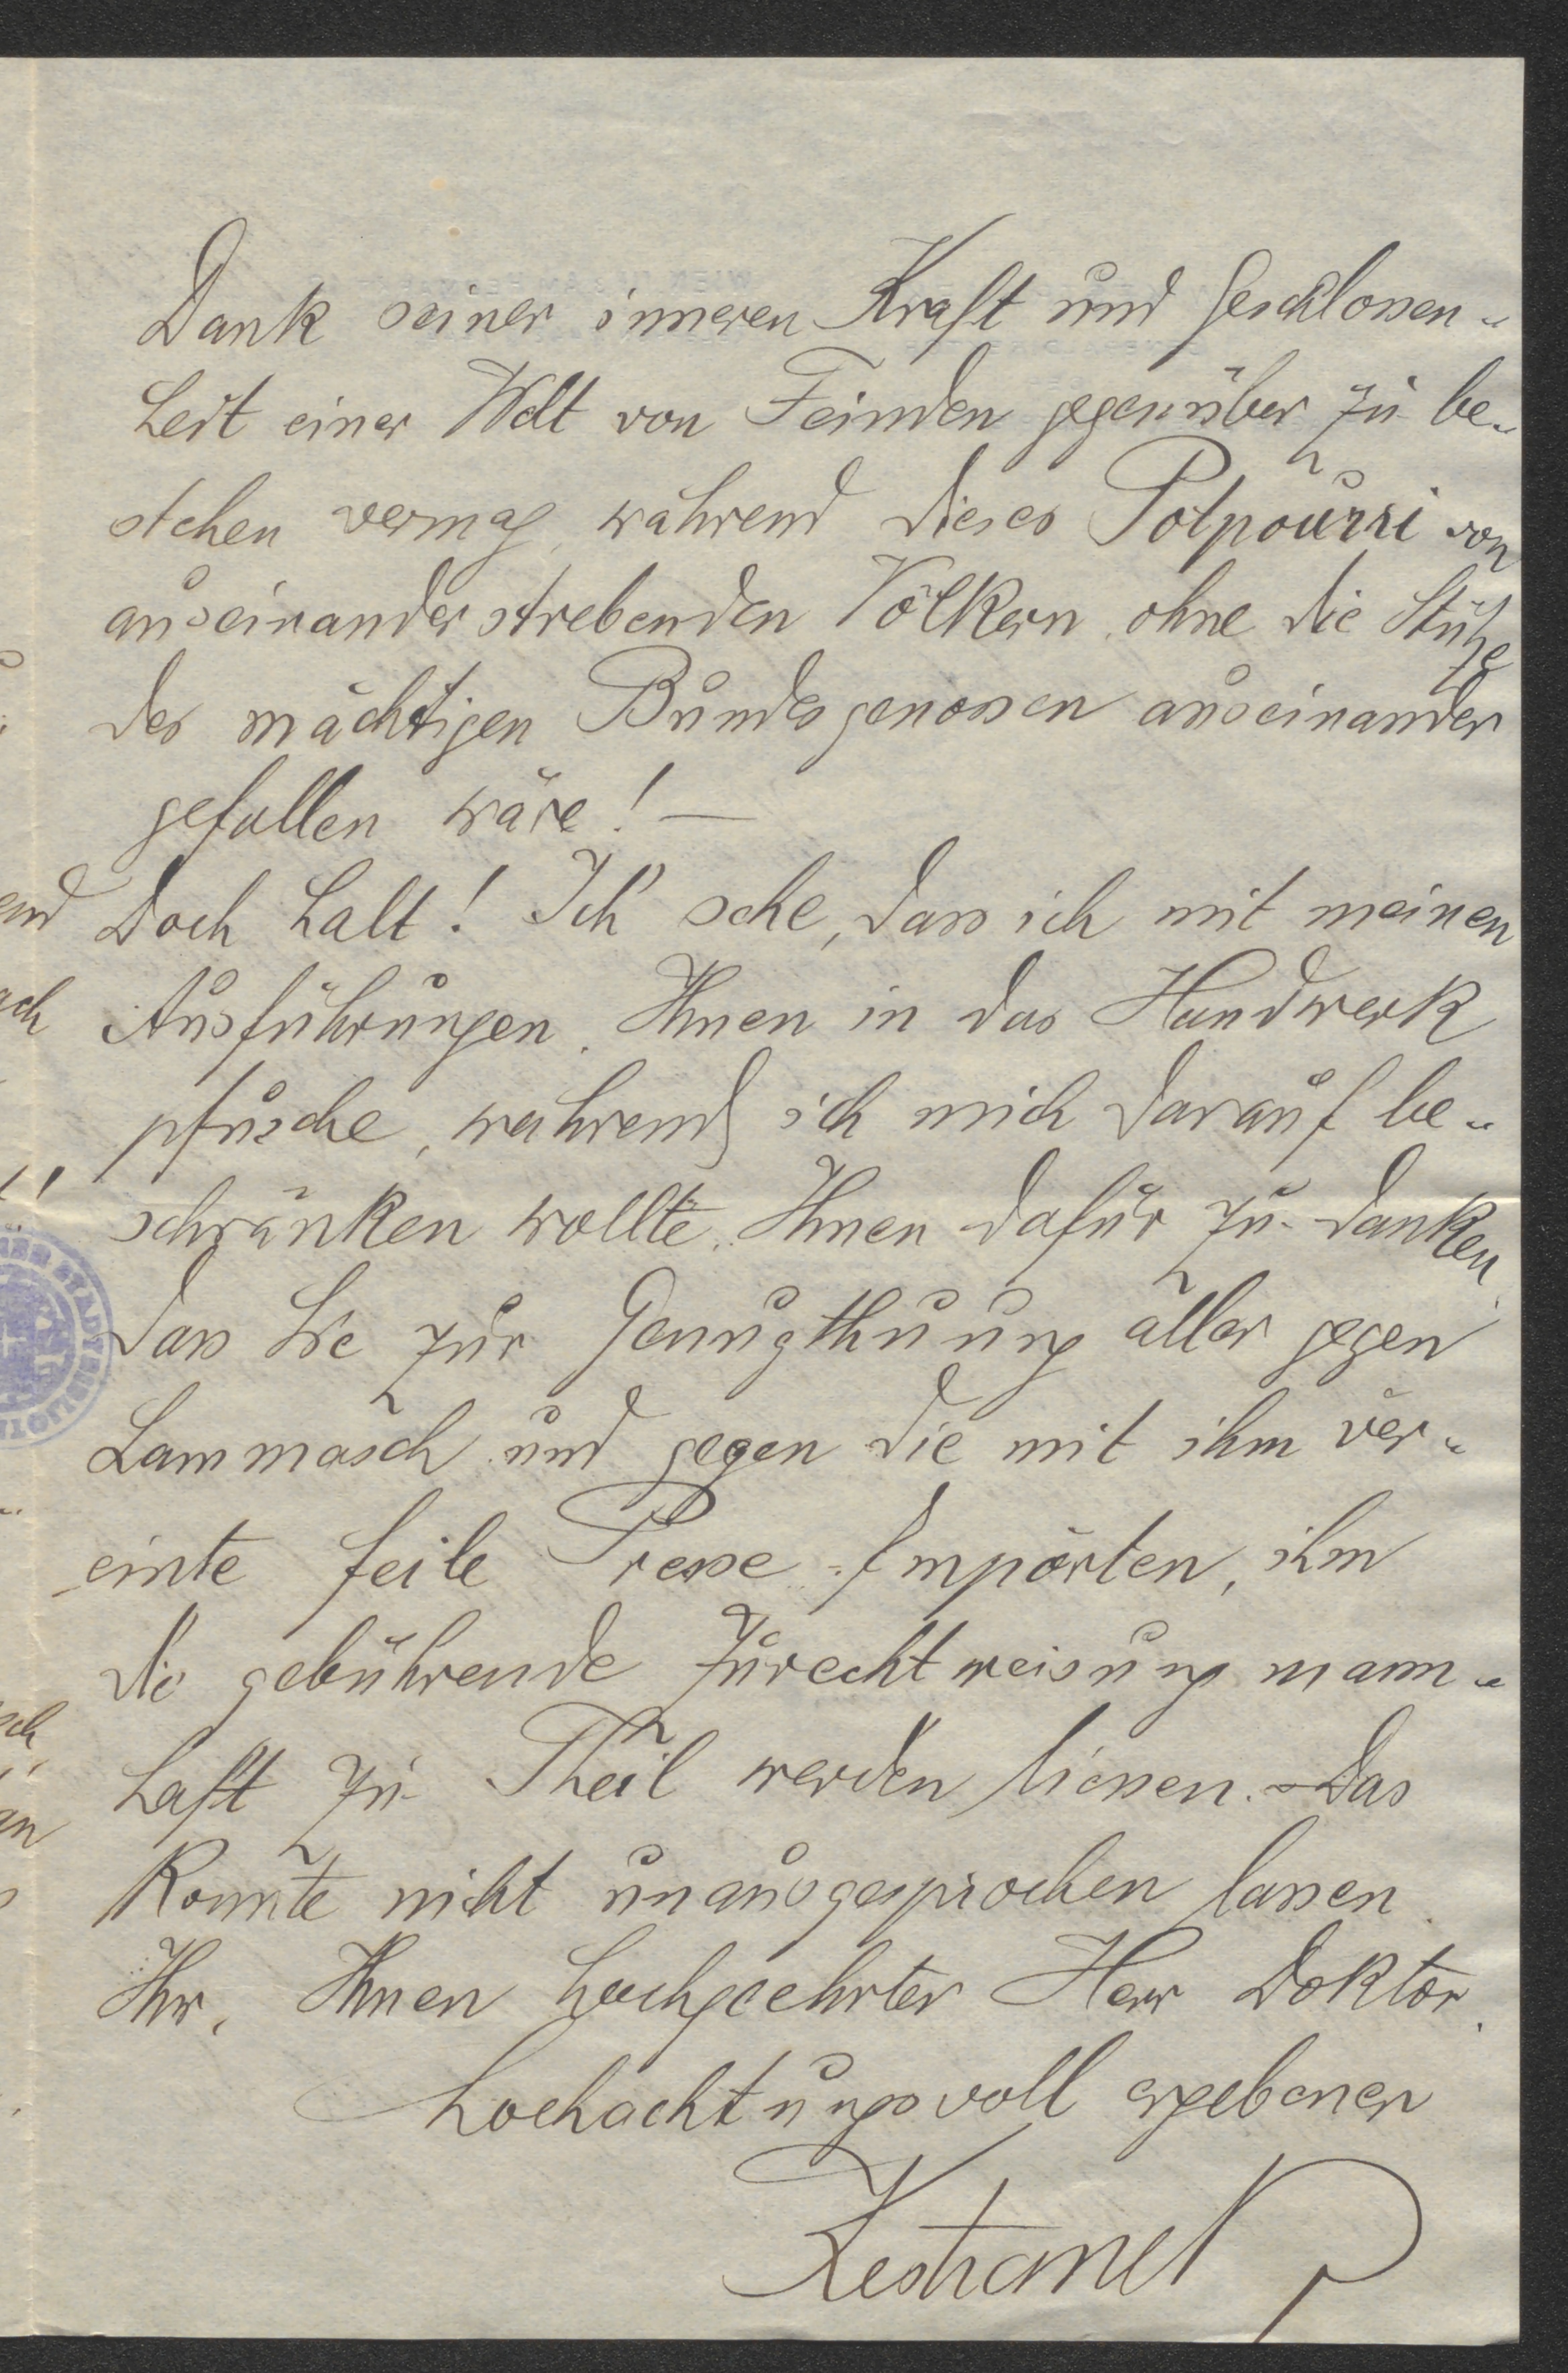 Dank seiner inneren Kraft und Geschlossen-
heit einer Welt von Feinden gegenüber zu be-
stehen vermag, während dieses Potpourri von
auseinanderstrebenden Völkern, ohne die Stütze
des mächtigen Bundesgenossen auseinander
gefallen wäre! —
Doch halt! Ich sehe, dass ich mit meinen
Ausführungen, Ihnen in das Handwerk
pfusche, während ich mich darauf be-
schränken wollte, Ihnen dafür zu danken,
dass Sie zur Genugthuung aller gegen
Lammasch und gegen die mit ihm ver-
einte feile Presse Empörten, ihm
die gebührende Zurechtweisung mann-
haft zu Theil werden liessen. Das
konnte nicht unausgesprochen lassen
Ihr, Ihnen hochgeehrter Herr Doktor,
hochachtungsvoll ergebener
Kestranek